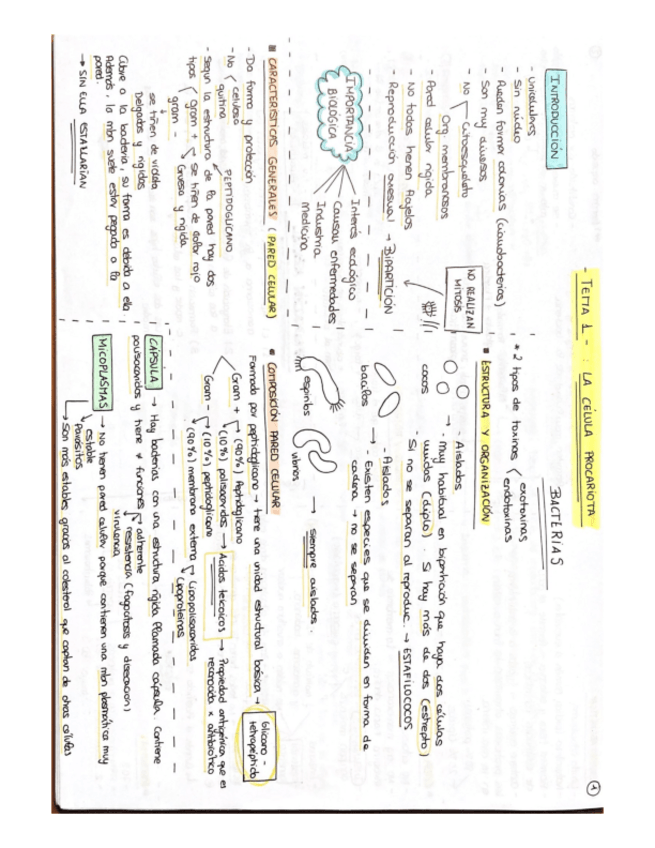 1
- TEMA 1 - : LA CÉLULA PROCARIOTA
BACTERIAS
INTRODUCCIÓN
- Unicelulares
- Sin núcleo
- Pueden forma colonias (cianobacterias)
- Son muy diversos
- No Citoesqueleto
Org. membranosos
- Pared celular rígida
- No todos tienen flagelos
- Reproducción asexual → BIPARTICIÓN
NO REALIZAN
MITOSIS
IMPORTANCIA
BIOLÓGICA
Interés ecológico
Causan enfermedades
Industria
Medicina
■ CARACTERÍSTICAS GENERALES (PARED CELULAR)
- Da forma y protección
- No celulosa
quitina
PEPTIDOGLICANO
- Según la estructura de la pared hay dos
tipos gram + → Se tiñen de color rojo
Gruesa y rígida
gram -
se tiñen de violeta
Delgados y rígidos
Cubre a la bacteria, su forma es debida a ella
Además, la mbn suele estar pegada a la
pared.
→ SIN ELLA ESTALLARÍAN
* 2 tipos de toxinas exotoxinas
endotoxinas
■ ESTRUCTURA Y ORGANIZACIÓN
cocos
→ - Aislados
- Muy habitual en bipartición que haya dos células
unidas (diplo). Si hay más de dos (estrepto)
- Si no se separan al reproduc. → ESTAFILOCOCOS
bacilos
→ - Aislados
- Existen especies que se dividen en forma de
cadena → no se separan
espirilos
vibrios
→ siempre aislados.
■ COMPOSICIÓN PARED CELULAR
Formada por peptidoglicano → tiene una unidad estructural básica → Glicano -
tetrapéptido
Gram + (90%) Peptidoglicano
(10%) polisacáridos → Ácidos teicoicos → Propiedad antigénica que es
reconocida x antibiótico
Gram - (10%) peptidoglicano
(90%) membrana externa Lipopolisacáridos
Lipoproteínas
CÁPSULA → Hay bacterias con una estructura rígida llamada cápsula. Contiene
polisacáridos y tiene ≠ funciones adherente
resistencia (fagocitosis y desecación)
virulencia
MICOPLASMAS → No tienen pared celular porque contienen una mbn plasmática muy
estable
Parásitos
Son más estables gracias al colesterol que captan de otras células